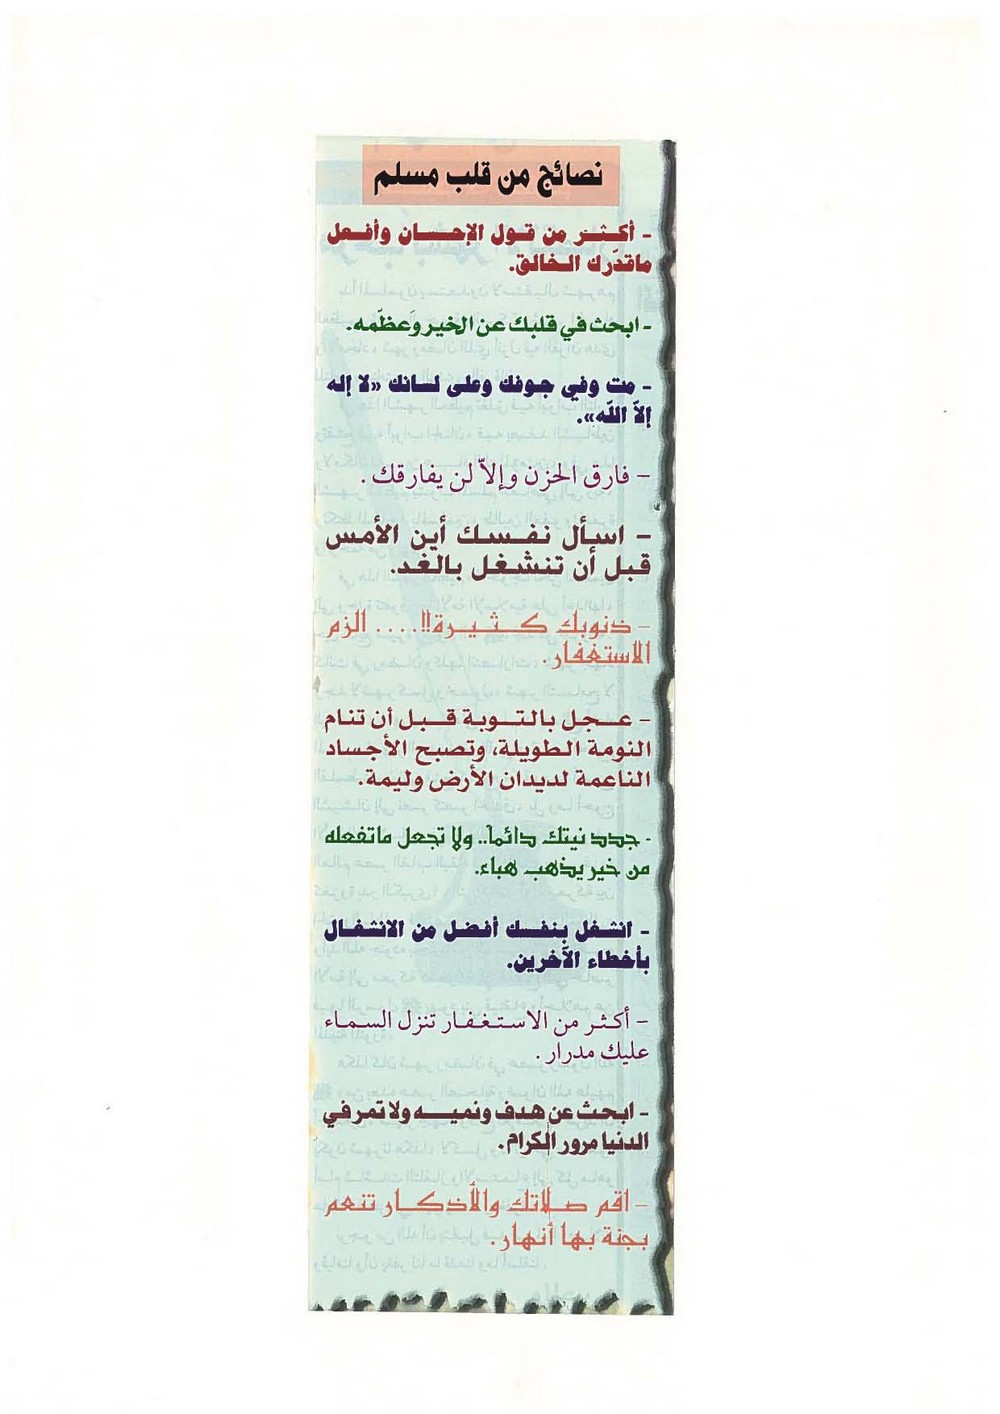 نصائح من قلب مسلم
- أكثر من قول الإحسان وأفعل
ماقدّرك الخالق.
- ابحث في قلبك عن الخير وَعظّمه.
- مت وفي جوفك وعلى لسانك «لا إله
إلاّ اللّه».
- فارق الحزن وإلاّ لن يفارقك .
- اسأل نفسك أين الأمس
قبل أن تنشغل بالغد.
- ذنوبك كثيرة!!.... الزم
الاستغفار.
- عجل بالتوبة قبل أن تنام
النومة الطويلة، وتصبح الأجساد
الناعمة لديدان الأرض وليمة.
- جدد نيتك دائماً.. ولا تجعل ماتفعله
من خير يذهب هباء.
- انشغل بنفسك أفضل من الانشغال
بأخطاء الآخرين.
- أكثر من الاستغفار تنزل السماء
عليك مدرار .
- ابحث عن هدف ونميه ولا تمر في
الدنيا مرور الكرام.
- اقم صلاتك والأذكار تنعم
بجنة بها أنهار.